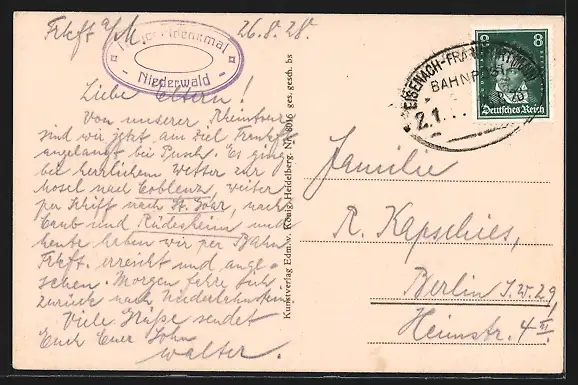 Frkft a/M. 26.8.28.
Niederwald
Liebe Eltern!
Von unserer Rheintour
sind wir jetzt am Ziel
angelangt bei Pusch. Es ging
bei herrlichem Wetter zur
Mosel nach Coblenz, weiter
per Schiff nach St. Goar, nach
Caub und Rüdesheim und
heute haben wir per Bahn
Frkft. erreicht und ange-
sehen. Morgen fahre ich
zurück nach
Viele Grüße sendet
Euch Euer Sohn
Walter.
Kunstverlag Edm. v. König, Heidelberg. Nr. 8016 ges. gesch. bs
EISENACH-FRANKFURT
BAHNPOST
21
8 8
Deutsches Reich
Familie
R. Kapschies,
Berlin S.W. 29,
Heimstr. 4 III